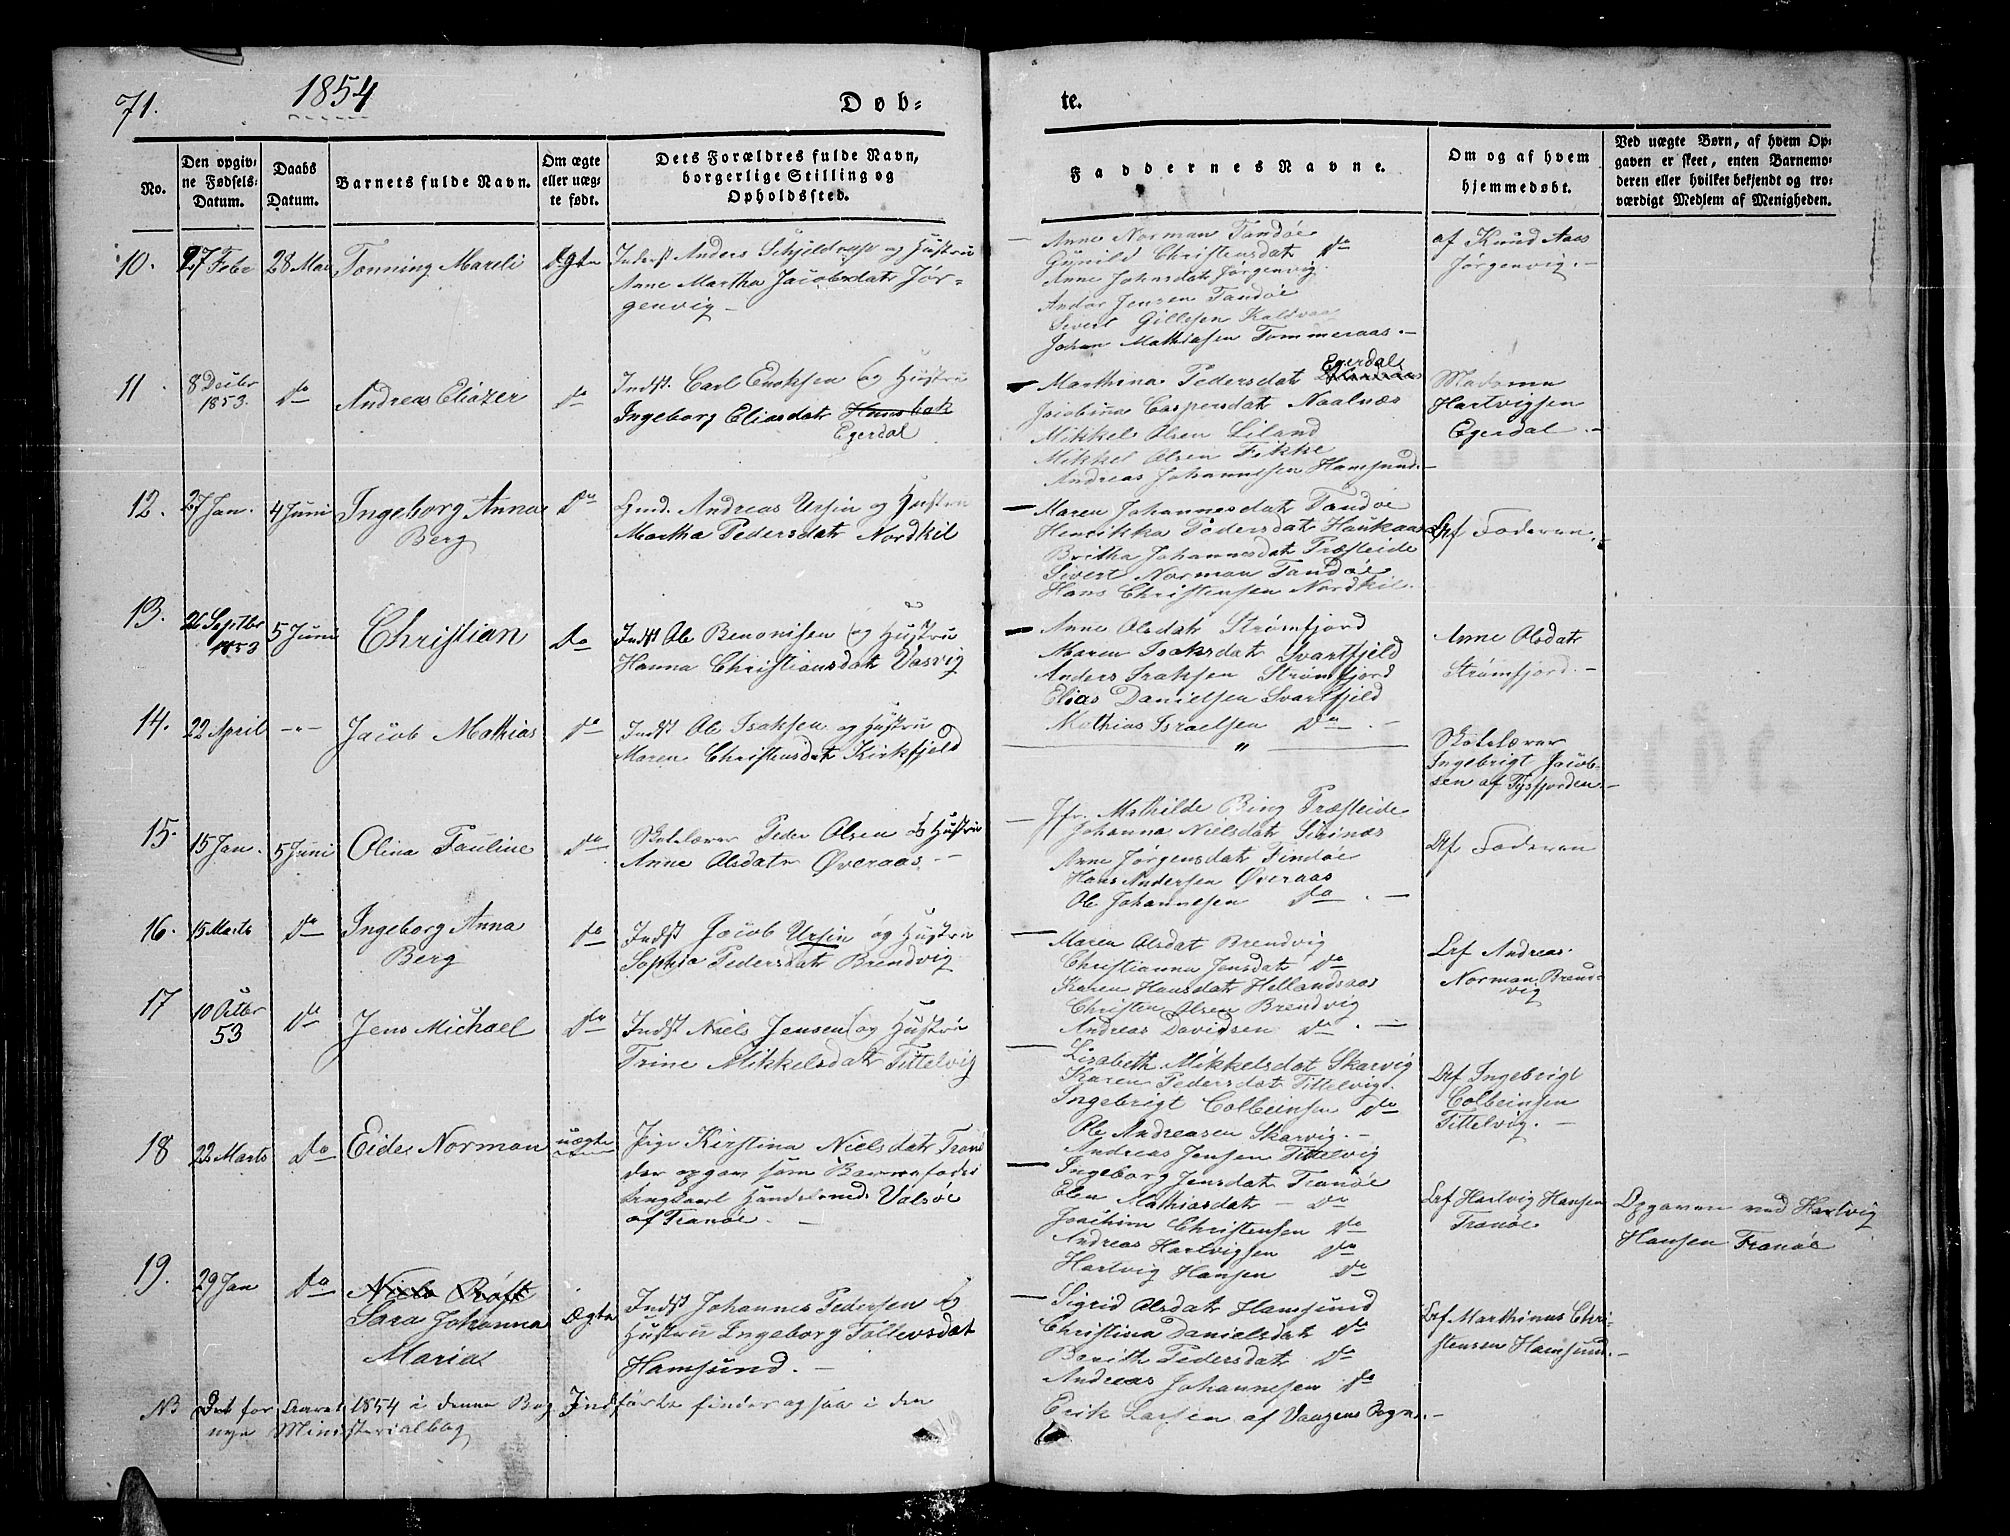 71.
1854
Døb-
te.
No.
Den opgiv-
ne Fødsels-
Datum.
Daabs
Datum.
Barnets fulde Navn.
Om ægte
eller uæg-
te født.
Dets Forældres fulde Navn,
borgerlige Stilling og
Opholdssted.
Faddernes Navne.
Om og af hvem
hjemmedøbt.
Ved uægte Børn, af hvem Op-
gaven er skeet, enten Barnemo-
deren eller hvilket bekjendt og tro-
værdigt Medlem af Menigheden.
10.
27 Febr
28 Mai
Tonning Mareli
Ægte
Inderst Anders og Hustru
Anne Martha Jacobsdatr Jør-
genvig
Anne Norman Tandøe
Gunild Christensdat do
Anne Johnsdatr Jørgenvig.
Andor Jensen Tandøe
Sivert Gillesen Kaldvaa
Johan Mathiasen Tømmeraas.
af Knud Aas
Jørgenvig.
11
8 Decbr
1853.
do
Andreas Eliazer
do
Indst. Carl Enoksen og Hustru
Ingeborg Eliasdatr
Egerdal
Egerdal
Marthina Pedersdatr
Jacobina Caspersdatr Naalnæs
Mikkel Olsen Liland
Mikkel Olsen Fikke
Andreas Johannesen Hamsund
Madame
Hartvigsen
Egerdal.
12.
27 Jan.
4 Juni
Ingeborg Anna
Berg
do
Gmd. Andreas Ursin og Hustru
Martha Pedersdatr Nordkil
Maren Johannesdatr Tandøe
Henrikka Pedersdatr Haukaas
Britha Johannesdatr Præsteide
Sivert Norman Tandøe
Hans Christensen Nordkil.
Af Faderen.
13.
26 Septbr
1853
5 Juni
Christian
do
Indst Ole Benonisen og Hustru
Hanna Christiansdatr Vasvig
Anne Olsdatr Strømfjord
Maren Isaksdatr Svartfjeld
Anders Isaksen Strømfjord
Elias Danielsen Svartfjeld
Mathias Israelsen do
Anne Olsdatr
Strømfjord.
14.
22 April
-"-
Jacob Mathias
do
Indst Ole Isaksen og Hustru
Maren Christensdatr Kirkfjeld
"
Skolelærer
Ingebrigt Jacob-
sen af Tysfjorden.
15.
15 Jan.
5 Juni
Olina Pauline
do
Skolelærer Peder Olsen og Hustru
Anne Olsdatr Øveraas
Jfr. Mathilde Bing Præsteide
Johanna Nielsdatr
Anne Jørgensdatr Findøe
Hans Andersen Øveraas
Ole Johannesen do.
Af Faderen
16.
15 Marts
do
Ingeborg Anna
Berg
do
Indst Jacob Ursin og Hustru
Sophia Pedersdatr Brendvig
Maren Olsdat Brendvig
Christianna Jensdatr do
Karen Hansdatr Hellandsaas
Christen Olsen Brendvig
Andreas Davidsen do.
Af Andreas
Norman Brend-
vig
17
10 Octbr
53
do
Jens Michael
do
Indst Niels Jensen og Hustru
Trine Mikkelsdatr Tittelvig
Lisabeth Mikkelsdat Skarvig
Karen Pedersdat Tittelvig.
Ingebrigt Colbeinsen do
Ole Andreasen Skarvig.
Andreas Jensen Tittelvig
Af Ingebrigt
Colbeinsen
Tittelvig.
18
22 Marts
do
Eide Norman
uægte
Pige Kirstina Nielsdatr Tran
der opgav som Barnefader
Ungkarl Valsøe
af Tranøe.
Ingeborg Jensdatr Tranøe
Elen Mathiasdatr do
Joachim Christensen do
Andreas Hartvigsen do
Hartvig Hansen do
Af Hartvig Hansen
Tranøe
Opgaven ved Hartvig
Hansen Tranøe
19.
29 Jan
do
Niels Røst
Sara Johanna
Maria
Ægte
Indst Johannes Pedersen og
Hustru Ingeborg Tollevsdat
Hamsund.
Sigrid Olsdatr Hamsund
Christina Danielsdatr do
Berith Pedersdatr do
Andreas Johannesen do
Erik Larsen af Vaagens Sogn.
Af Marthinus Chri-
stensen Hamsund.
NB Det for Aaret 1854 i denne Bog Indførte findes ogsaa i den
nye Ministerialbog